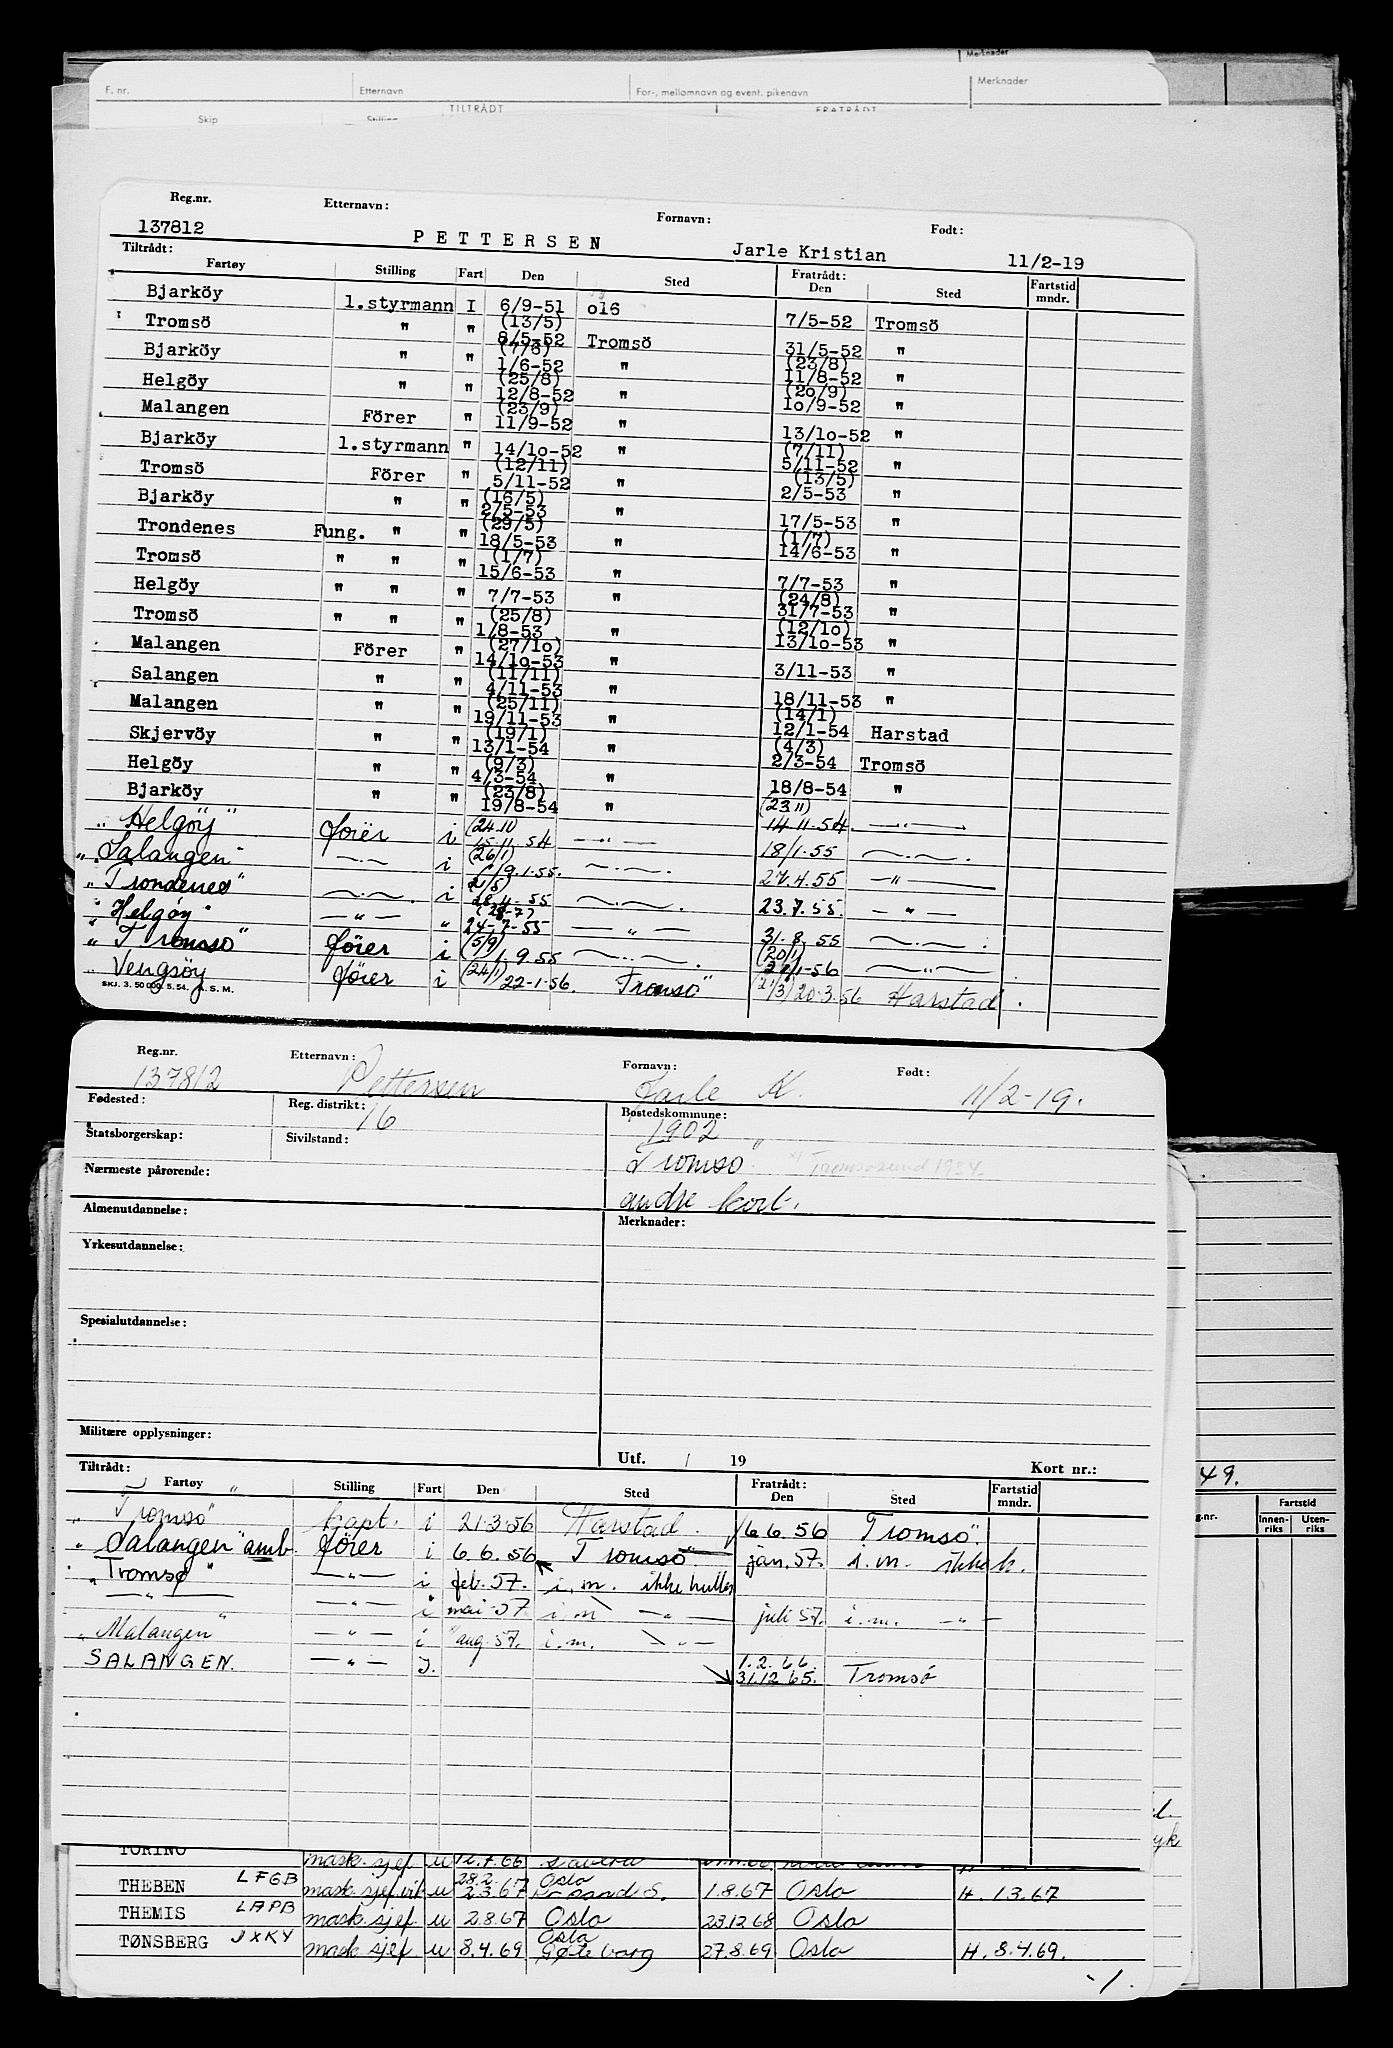 Merknader
F. nr. Etternavn For-, mellomnavn og event. pikenavn Merknader
TILTRÅDT FRATRÅDT
Skip Stilling
Reg.nr. Etternavn: Fornavn: Født:
137812 PETTERSEN Jarle Kristian 11/2-19
Tiltrådt: Fratrådt:
Fartøy Stilling Fart Den Sted Den Sted Fartstid mndr.
Bjarköy 1.styrmann I 6/9-51 o16 7/5-52 Tromsö
Tromsö " " (13/5) 8/5-52 Tromsö 31/5-52 "
Bjarköy " " (7/6) 1/6-52 " (23/8) 11/8-52 "
Helgöy " " (25/8) 12/8-52 " (20/9) 1o/9-52 "
Malangen Förer " (23/9) 11/9-52 " 13/1o-52 "
Bjarköy 1.styrmann " 14/1o-52 " (7/11) 5/11-52 "
Tromsö Förer " (12/11) 5/11-52 " (13/5) 2/5-53 "
Bjarköy " " (16/5) 2/5-53 " 17/5-53 "
Trondenes Fung. " " (29/5) 18/5-53 " (1/7) 14/6-53 "
Tromsö " " " (1/7) 15/6-53 " 7/7-53 "
Helgöy " " " 7/7-53 " (24/8) 31/7-53 "
Tromsö " " " (25/8) 1/8-53 " (12/1o) 13/1o-53 "
Malangen Förer " (27/1o) 14/1o-53 " 3/11-53 "
Salangen " " (11/11) 4/11-53 " 18/11-53 "
Malangen " " (25/11) 19/11-53 " (14/1) 12/1-54 Harstad
Skjervöy " " (19/1) 13/1-54 " (4/3) 2/3-54 Tromsö
Helgöy " " (9/3) 4/3-54 " 18/8-54 "
Bjarköy " " (23/8) 19/8-54 " (23 11) 14.11.54. —"—
"Helgöy" fører i (24.11) 15.11.54 —"— 18/1.55 —"—
"Salangen" —"— i (26/1) 19.1.55. —"— 27.4.55 —"—
"Trondenes" —"— i (2/5) 28.4.55 —"— 23.7.55. —"—
"Helgøy" —"— " (28-7) 24-7-55 —"— 31.8.55 —"—
"Tromsö" fører i (5/9) 1.9.55 —"— (20/1) 21/1-56 —"—
"Vengsöy fører i (24/1) 22-1-56. Tromsö" 20.3.56 Harstad.
SKJ. 3. 50 000. 5.54. A. S. M.
Reg.nr. Etternavn: Fornavn: Født:
137812 Pettersen Jarle K. 11/2-19.
Fødested: Reg. distrikt: 16 Bostedskommune: 1902
Statsborgerskap: Sivilstand: Tromsö" x) Tromsøsund 1934.
Nærmeste pårørende: andre kort.
Almenutdannelse: Merknader:
Yrkesutdannelse:
Spesialutdannelse:
Militære opplysninger:
Utf. / 19 Kort nr.:
Tiltrådt: Fratrådt:
Fartøy Stilling Fart Den Sted Den Sted Fartstid mndr.
"Tromsö" kapt. i 21.3.56 Harstad. 6.6.56 Tromsö".
"Salangen" amb. fører i 6.6.56 Tromsö". jan.57. i.m. ikke k.
"Tromsø" —"— i feb.57. i.m. ikke hullet
—"— —"— i mai-57 i.m —"— juli 57. i.m. —"—
"Malangen" —"— i aug.57. i.m. —"—
SALANGEN. —"— I. 1.2.66. 31.12 65. Tromsø
49.
Fartstid
Innenriks Utenriks
TORINO mask. sjef u
THEBEN LFGB mask. sjef u 28.2. 2.3.67 Oslo 1.8.67 Oslo H. 1.3.67
THEMIS LAPB mask. sjef u 2.8.67 Oslo 23.12.68 Oslo
TØNSBERG JXKY mask. sjef u 8.4.69 Oslo Gøteborg 27.8.69 Oslo H. 8.4.69.
-/.